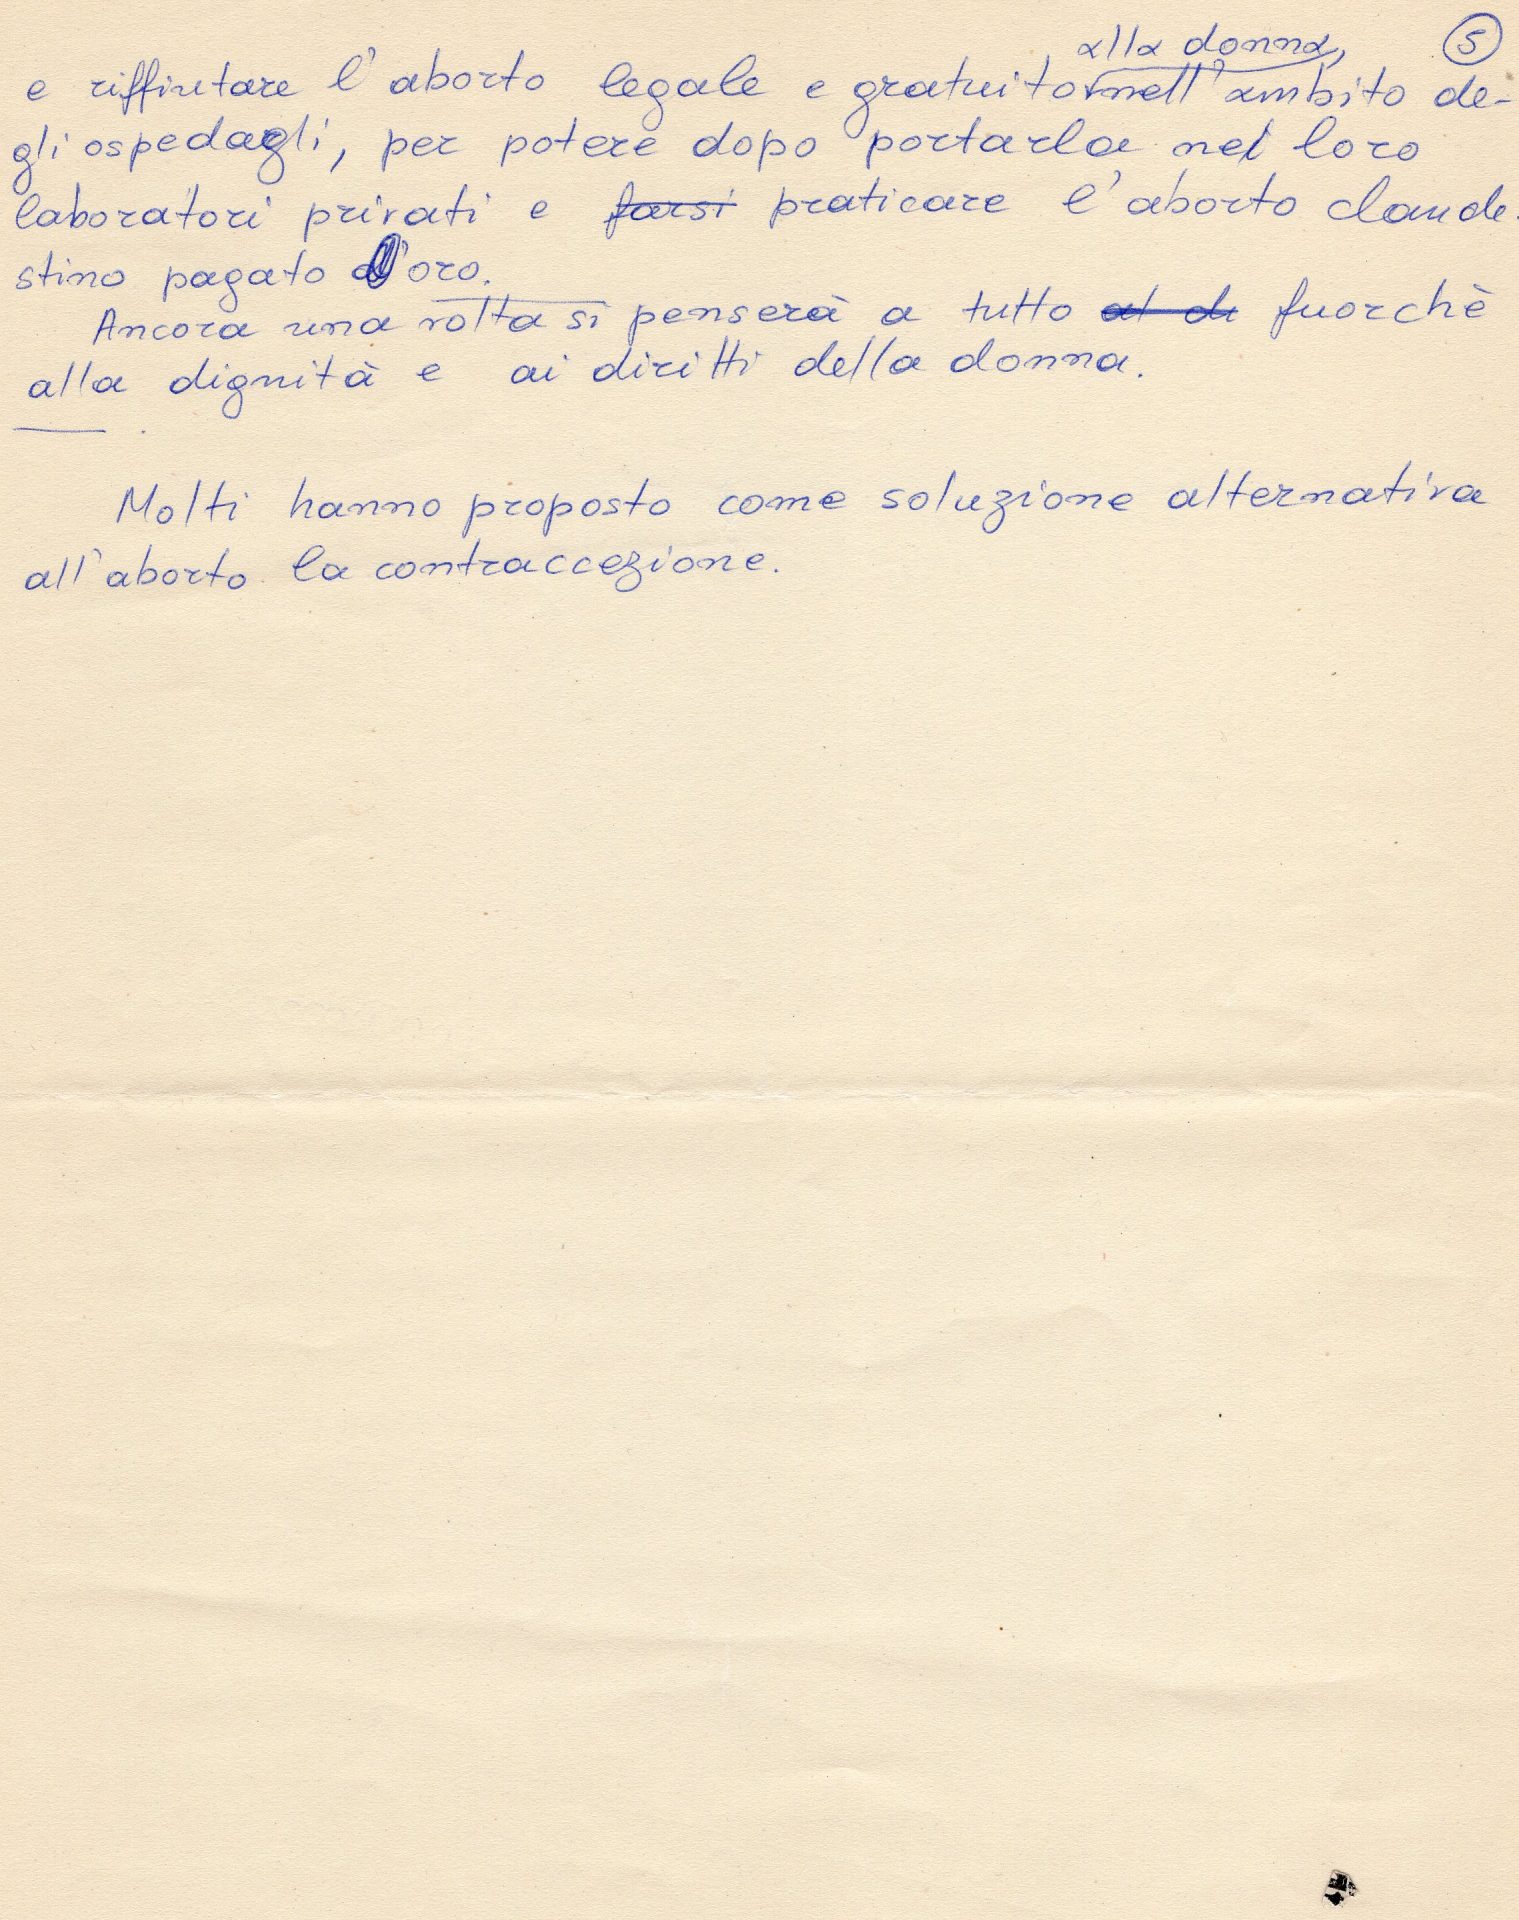 5
alla donna,
e riffiutare l'aborto legale e gratuito nell'ambito de-
gli ospedagli, per potere dopo portarla nei loro
laboratori privati e farsi praticare l'aborto clande-
stino pagato d'oro.
Ancora una volta si penserà a tutto al di fuorchè
alla dignità e ai diritti della donna.
Molti hanno proposto come soluzione alternativa
all'aborto la contraccezione.